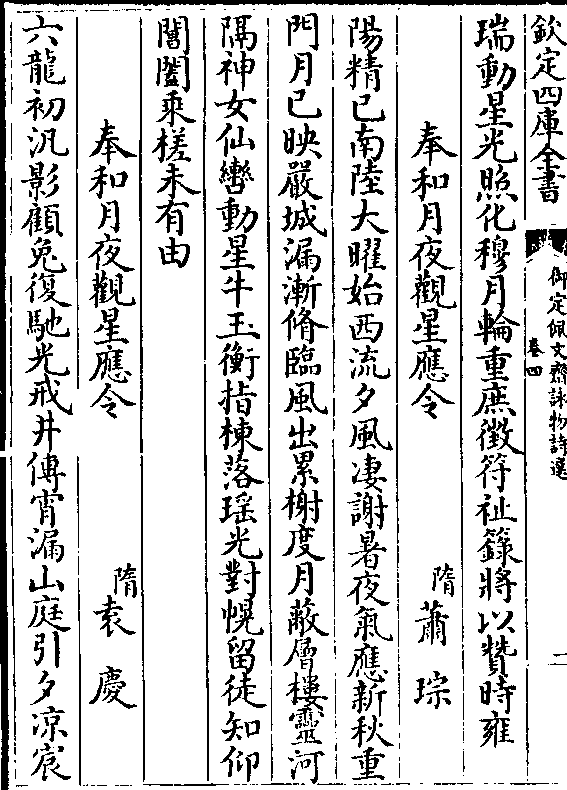 欽定四庫全書
御定佩文齋詠物詩選
卷四
二
瑞動星光照化穆月輪重庶徵符祉籙將以贊時雍
奉和月夜觀星應令
隋蕭琮
陽精已南陸大曜始西流夕風凄謝暑夜氣應新秋重
門月已映嚴城漏漸脩臨風出累榭度月蔽層樓靈河
隔神女仙轡動星牛玉衡指棟落瑶光對幌留徒知仰
閶闔乘槎未有由
奉和月夜觀星應令
隋袁慶
六龍初汎影顧兎復馳光戒井傳宵漏山庭引夕凉宸